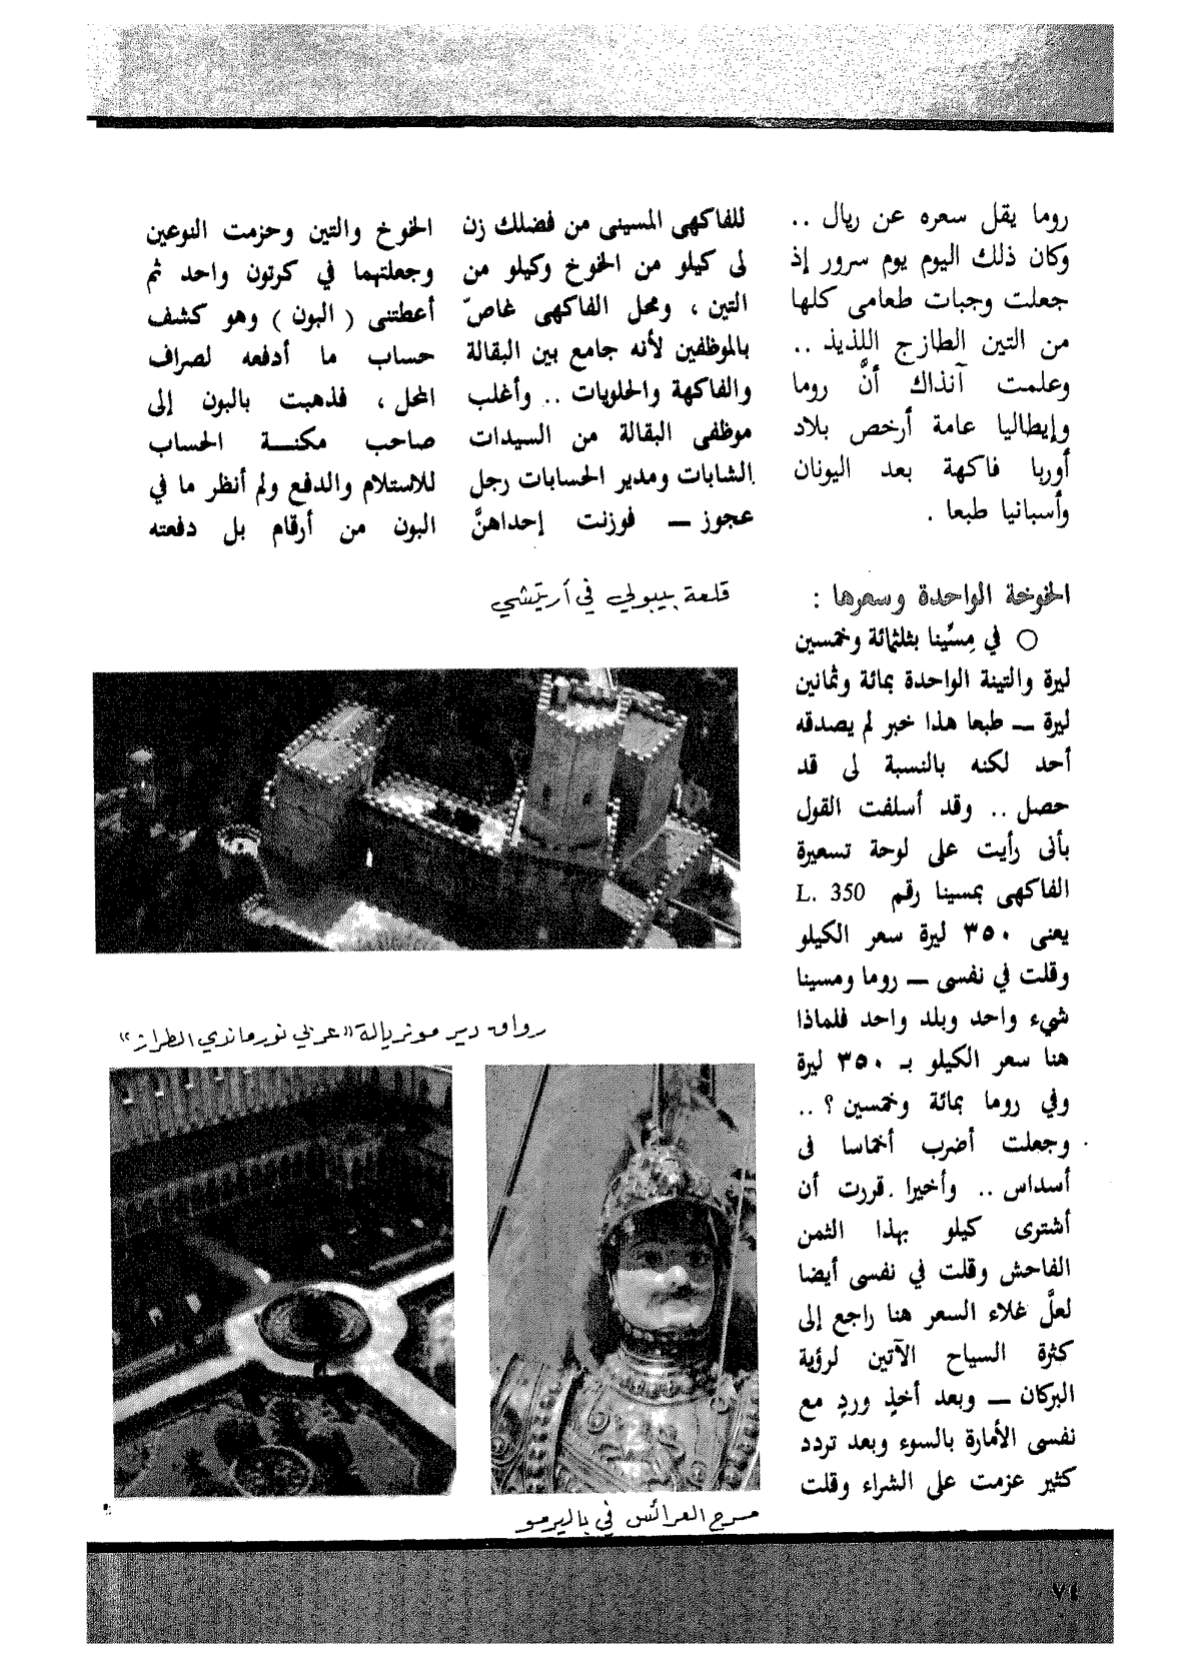 روما يقل سعره عن ريال ..
وكان ذلك اليوم يوم سرور إذ
جعلت وجبات طعامى كلها
من التين الطازج اللذيذ ..
وعلمت آنذاك أنَّ روما
وإيطاليا عامة أرخص بلاد
أوربا فاكهة بعد اليونان
وأسبانيا طبعا .
الخوخة الواحدة وسعرها :
○ في مِسِّينا بثلثمائة وخمسين
ليرة والتينة الواحدة بمائة وثمانين
ليرة ــ طبعا هذا خبر لم يصدقه
أحد لكنه بالنسبة لى قد
حصل .. وقد أسلفت القول
بأنى رأيت على لوحة تسعيرة
الفاكهى بمسينا رقم L. 350
يعنى ٣٥٠ ليرة سعر الكيلو
وقلت في نفسى ــ روما ومسينا
شيء واحد وبلد واحد فلماذا
هنا سعر الكيلو بـ ٣٥٠ ليرة
وفي روما بمائة وخمسين ؟ ..
وجعلت أضرب أخماسا فى
أسداس .. وأخيرا قررت أن
أشترى كيلو بهذا الثمن
الفاحش وقلت في نفسى أيضا
لعلَّ غلاء السعر هنا راجع إلى
كثرة السياح الآتين لرؤية
البركان ــ وبعد أخذٍ وردٍ مع
نفسى الأمارة بالسوء وبعد تردد
كثير عزمت على الشراء وقلت
للفاكهى المسينى من فضلك زن
لى كيلو من الخوخ وكيلو من
التين ، ومحل الفاكهى غاصّ
بالموظفين لأنه جامع بين البقالة
والفاكهة والحلويات .. وأغلب
موظفى البقالة من السيدات
الشابات ومدير الحسابات رجل
عجوز ــ فوزنت إحداهنَّ
الخوخ والتين وحزمت النوعين
وجعلتهما في كرتون واحد ثم
أعطتنى ( البون ) وهو كشف
حساب ما أدفعه لصراف
المحل ، فذهبت بالبون إلى
صاحب مكنـة الحساب
للاستلام والدفع ولم أنظر ما في
البون من أرقام بل دفعته
قلعة بيبولي في أريتشي
رواق دير مونريالة «عربي نورماندي الطراز»
مسرح العرائس في باليرمو
٧٤